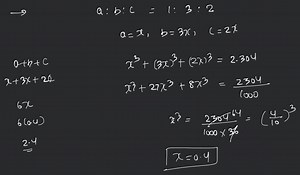 → a : b : c = 1 : 3 : 2
a = x, b = 3x, c = 2x
x³ + (3x)³ + (2x)³ = 2.304
x³ + 27x³ + 8x³ = 2304/1000
x³ = 2304 64/1000 × 36 = (4/10)³
x = 0.4
a+b+c
x+3x+2x
6x
6(0.4)
2.4